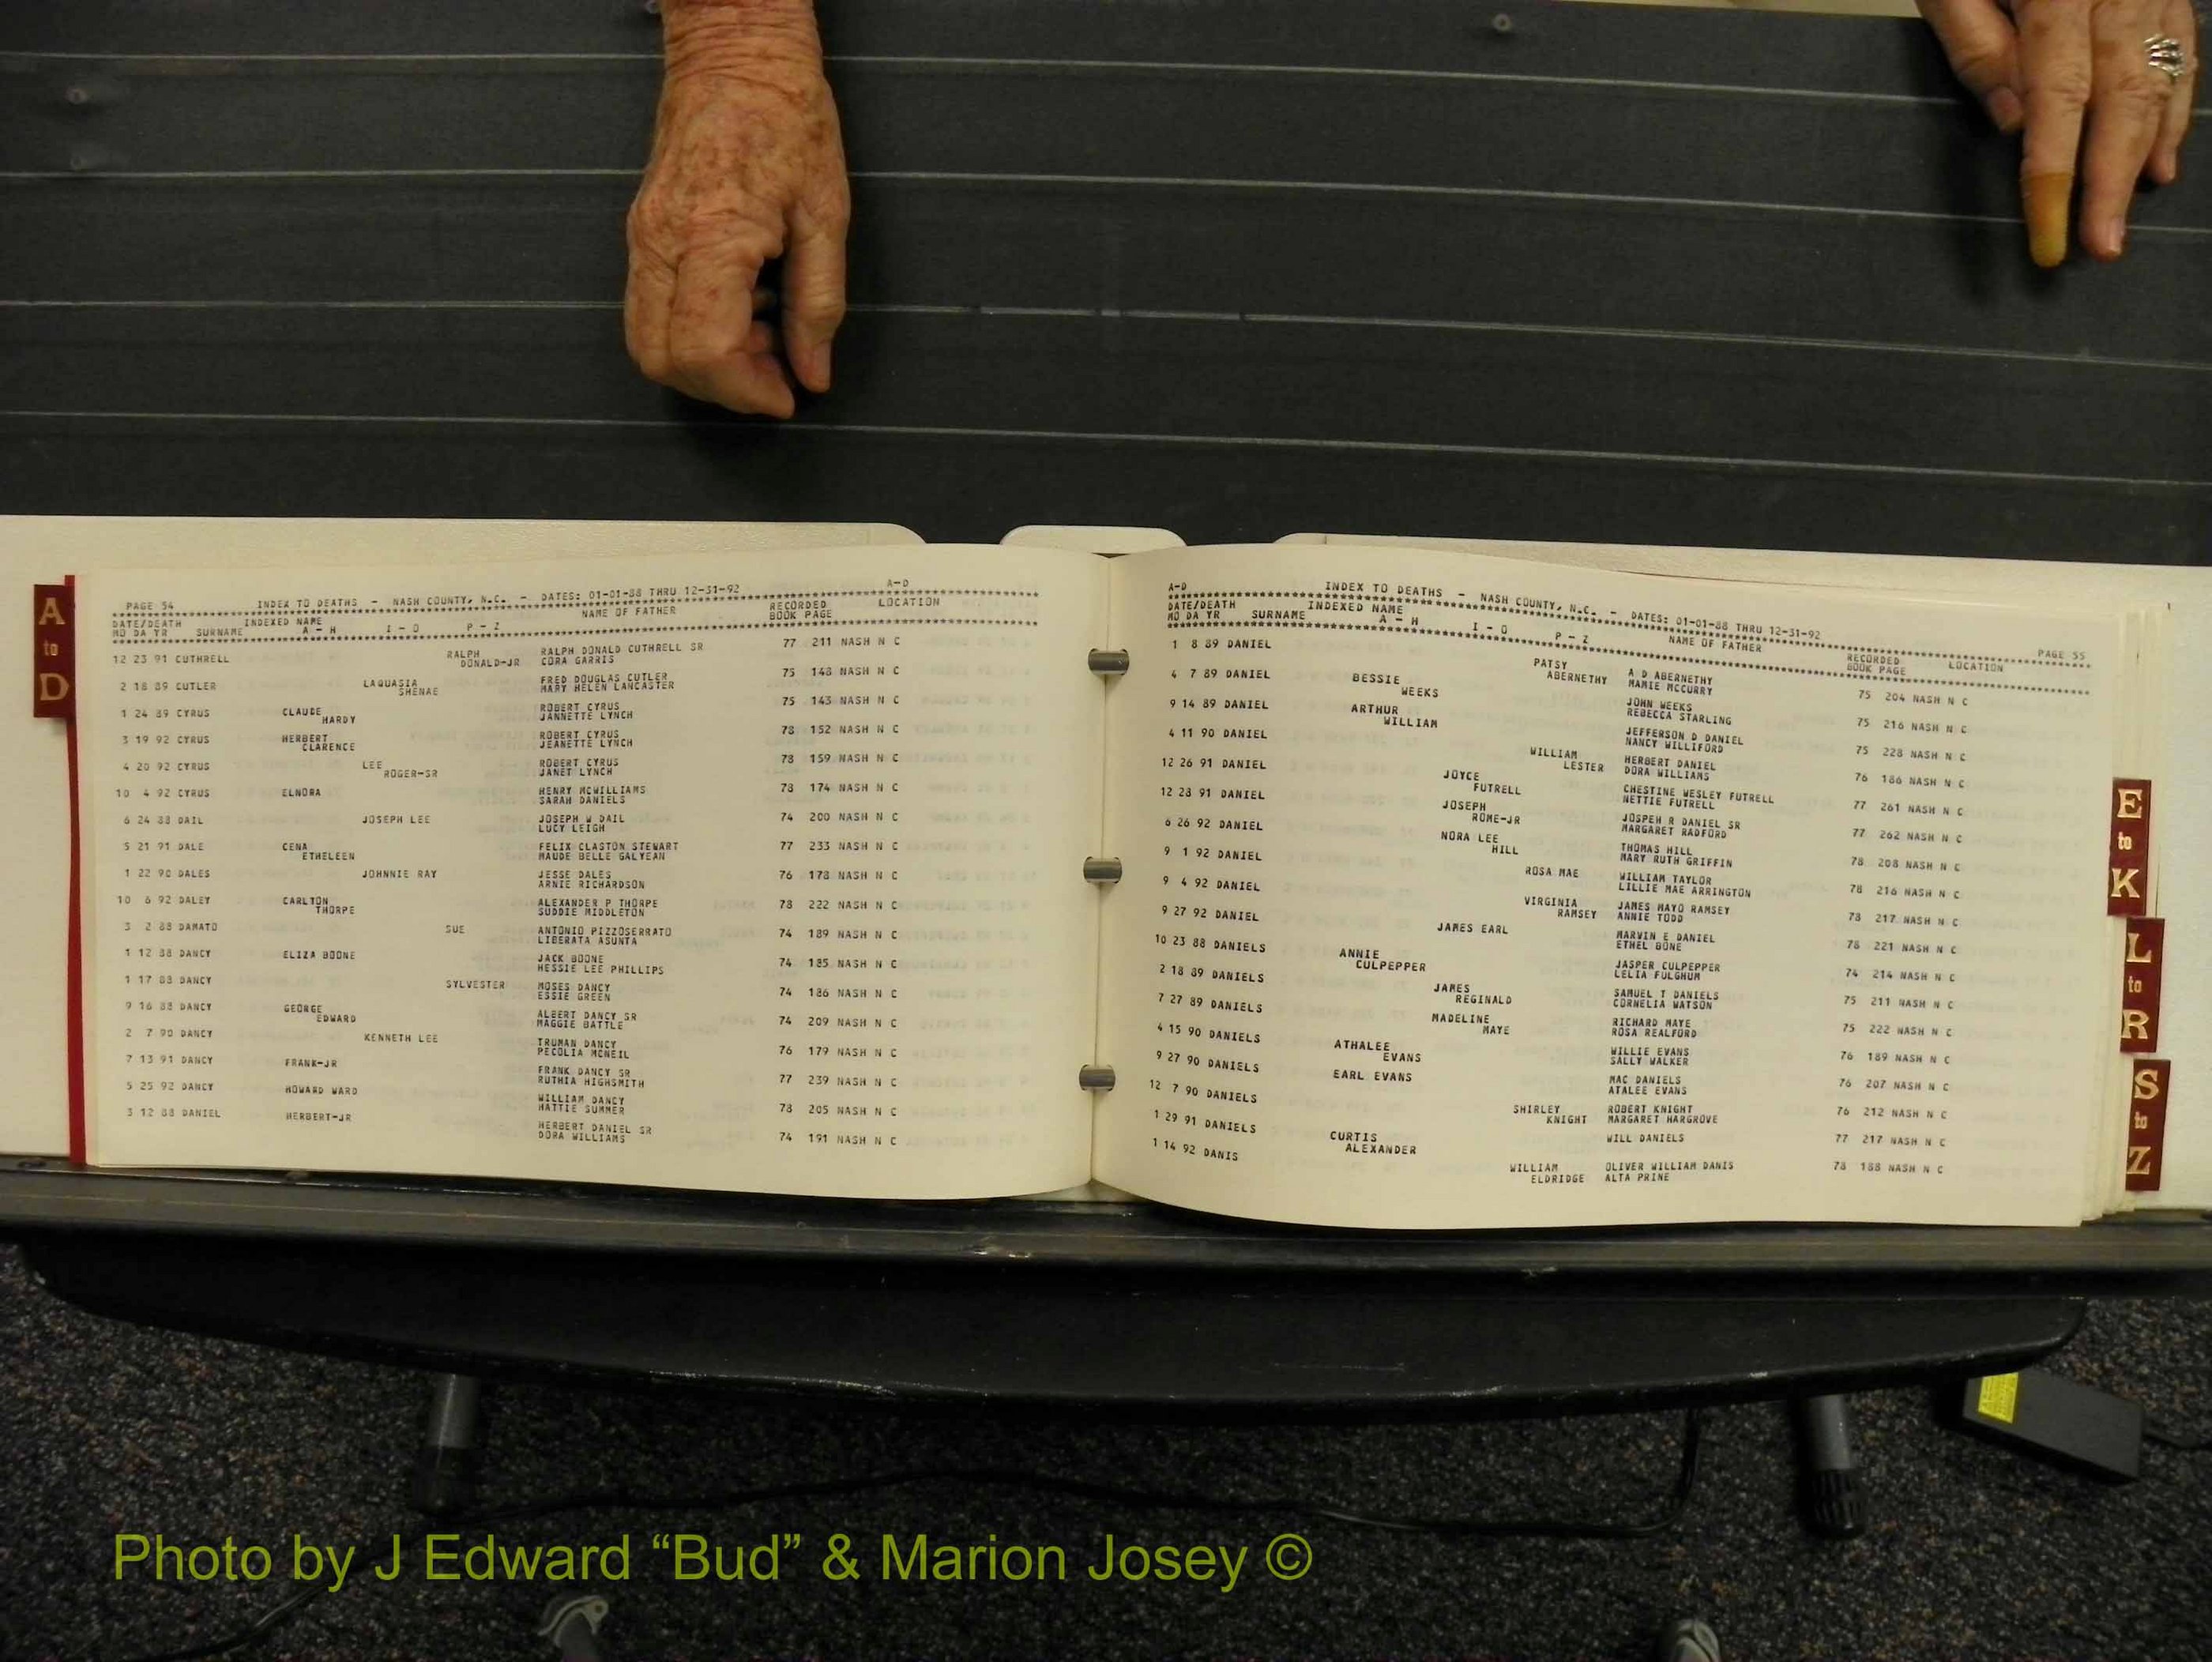 A
to
D
PAGE 54 INDEX TO DEATHS - NASH COUNTY, N.C. - DATES: 01-01-88 THRU 12-31-92 A-D
DATE/DEATH INDEXED NAME NAME OF FATHER RECORDED LOCATION
MO DA YR SURNAME A - H I - O P - Z BOOK PAGE
12 23 91 CUTHRELL RALPH RALPH DONALD CUTHRELL SR 77 211 NASH N C
DONALD-JR CORA GARRIS
2 18 89 CUTLER LAQUASIA FRED DOUGLAS CUTLER 75 148 NASH N C
SHENAE MARY HELEN LANCASTER
1 24 89 CYRUS CLAUDE ROBERT CYRUS 75 143 NASH N C
HARDY JANNETTE LYNCH
3 19 92 CYRUS HERBERT ROBERT CYRUS 78 152 NASH N C
CLARENCE JEANETTE LYNCH
4 20 92 CYRUS LEE ROBERT CYRUS 78 159 NASH N C
ROGER-SR JANET LYNCH
10 4 92 CYRUS ELNORA HENRY MCWILLIAMS 78 174 NASH N C
SARAH DANIELS
6 24 88 DAIL JOSEPH LEE JOSEPH W DAIL 74 200 NASH N C
LUCY LEIGH
5 21 91 DALE CENA FELIX CLASTON STEWART 77 233 NASH N C
ETHELEEN MAUDE BELLE GALYEAN
1 22 90 DALES JOHNNIE RAY JESSE DALES 76 178 NASH N C
ARNIE RICHARDSON
10 6 92 DALEY CARLTON ALEXANDER P THORPE 78 222 NASH N C
THORPE SUDDIE MIDDLETON
3 2 88 DAMATO SUE ANTONIO PIZZOSERRATO 74 189 NASH N C
LIBERATA ASUNTA
1 12 88 DANCY ELIZA BOONE JACK BOONE 74 185 NASH N C
HESSIE LEE PHILLIPS
1 17 88 DANCY SYLVESTER MOSES DANCY 74 186 NASH N C
ESSIE GREEN
9 16 88 DANCY GEORGE ALBERT DANCY SR 74 209 NASH N C
EDWARD MAGGIE BATTLE
2 7 90 DANCY KENNETH LEE TRUMAN DANCY 76 179 NASH N C
PECOLIA MCNEIL
7 13 91 DANCY FRANK-JR FRANK DANCY SR 77 239 NASH N C
RUTHIA HIGHSMITH
5 25 92 DANCY HOWARD WARD WILLIAM DANCY 78 205 NASH N C
HATTIE SUMNER
3 12 88 DANIEL HERBERT-JR HERBERT DANIEL SR 74 191 NASH N C
DORA WILLIAMS
A-D INDEX TO DEATHS - NASH COUNTY, N.C. - DATES: 01-01-88 THRU 12-31-92 PAGE 55
DATE/DEATH INDEXED NAME NAME OF FATHER RECORDED LOCATION
MO DA YR SURNAME A - H I - O P - Z BOOK PAGE
1 8 89 DANIEL PATSY A D ABERNETHY 75 204 NASH N C
ABERNETHY MAMIE MCCURRY
4 7 89 DANIEL BESSIE JOHN WEEKS 75 216 NASH N C
WEEKS REBECCA STARLING
9 14 89 DANIEL ARTHUR JEFFERSON D DANIEL 75 228 NASH N C
WILLIAM NANCY WILLIFORD
4 11 90 DANIEL WILLIAM HERBERT DANIEL 76 186 NASH N C
LESTER DORA WILLIAMS
12 26 91 DANIEL JOYCE CHESTINE WESLEY FUTRELL 77 261 NASH N C
FUTRELL NETTIE FUTRELL
12 28 91 DANIEL JOSEPH JOSPEH R DANIEL SR 77 262 NASH N C
ROME-JR MARGARET RADFORD
6 26 92 DANIEL NORA LEE THOMAS HILL 78 208 NASH N C
HILL MARY RUTH GRIFFIN
9 1 92 DANIEL ROSA MAE WILLIAM TAYLOR 78 216 NASH N C
LILLIE MAE ARRINGTON
9 4 92 DANIEL VIRGINIA JAMES MAYO RAMSEY 78 217 NASH N C
RAMSEY ANNIE TODD
9 27 92 DANIEL JAMES EARL MARVIN E DANIEL 78 221 NASH N C
ETHEL BONE
10 23 88 DANIELS ANNIE JASPER CULPEPPER 74 214 NASH N C
CULPEPPER LELIA FULGHUM
2 18 89 DANIELS JAMES SAMUEL T DANIELS 75 211 NASH N C
REGINALD CORNELIA WATSON
7 27 89 DANIELS MADELINE RICHARD MAYE 75 222 NASH N C
MAYE ROSA REALFORD
4 15 90 DANIELS ATHALEE WILLIE EVANS 76 189 NASH N C
EVANS SALLY WALKER
9 27 90 DANIELS EARL EVANS MAC DANIELS 76 207 NASH N C
ATALEE EVANS
12 7 90 DANIELS SHIRLEY ROBERT KNIGHT 76 212 NASH N C
KNIGHT MARGARET HARGROVE
1 29 91 DANIELS CURTIS WILL DANIELS 77 217 NASH N C
ALEXANDER
1 14 92 DANIS WILLIAM OLIVER WILLIAM DANIS 78 188 NASH N C
ELDRIDGE ALTA PRINE
E
to
K
L
to
R
S
to
Z
Photo by J Edward “Bud” & Marion Josey ©